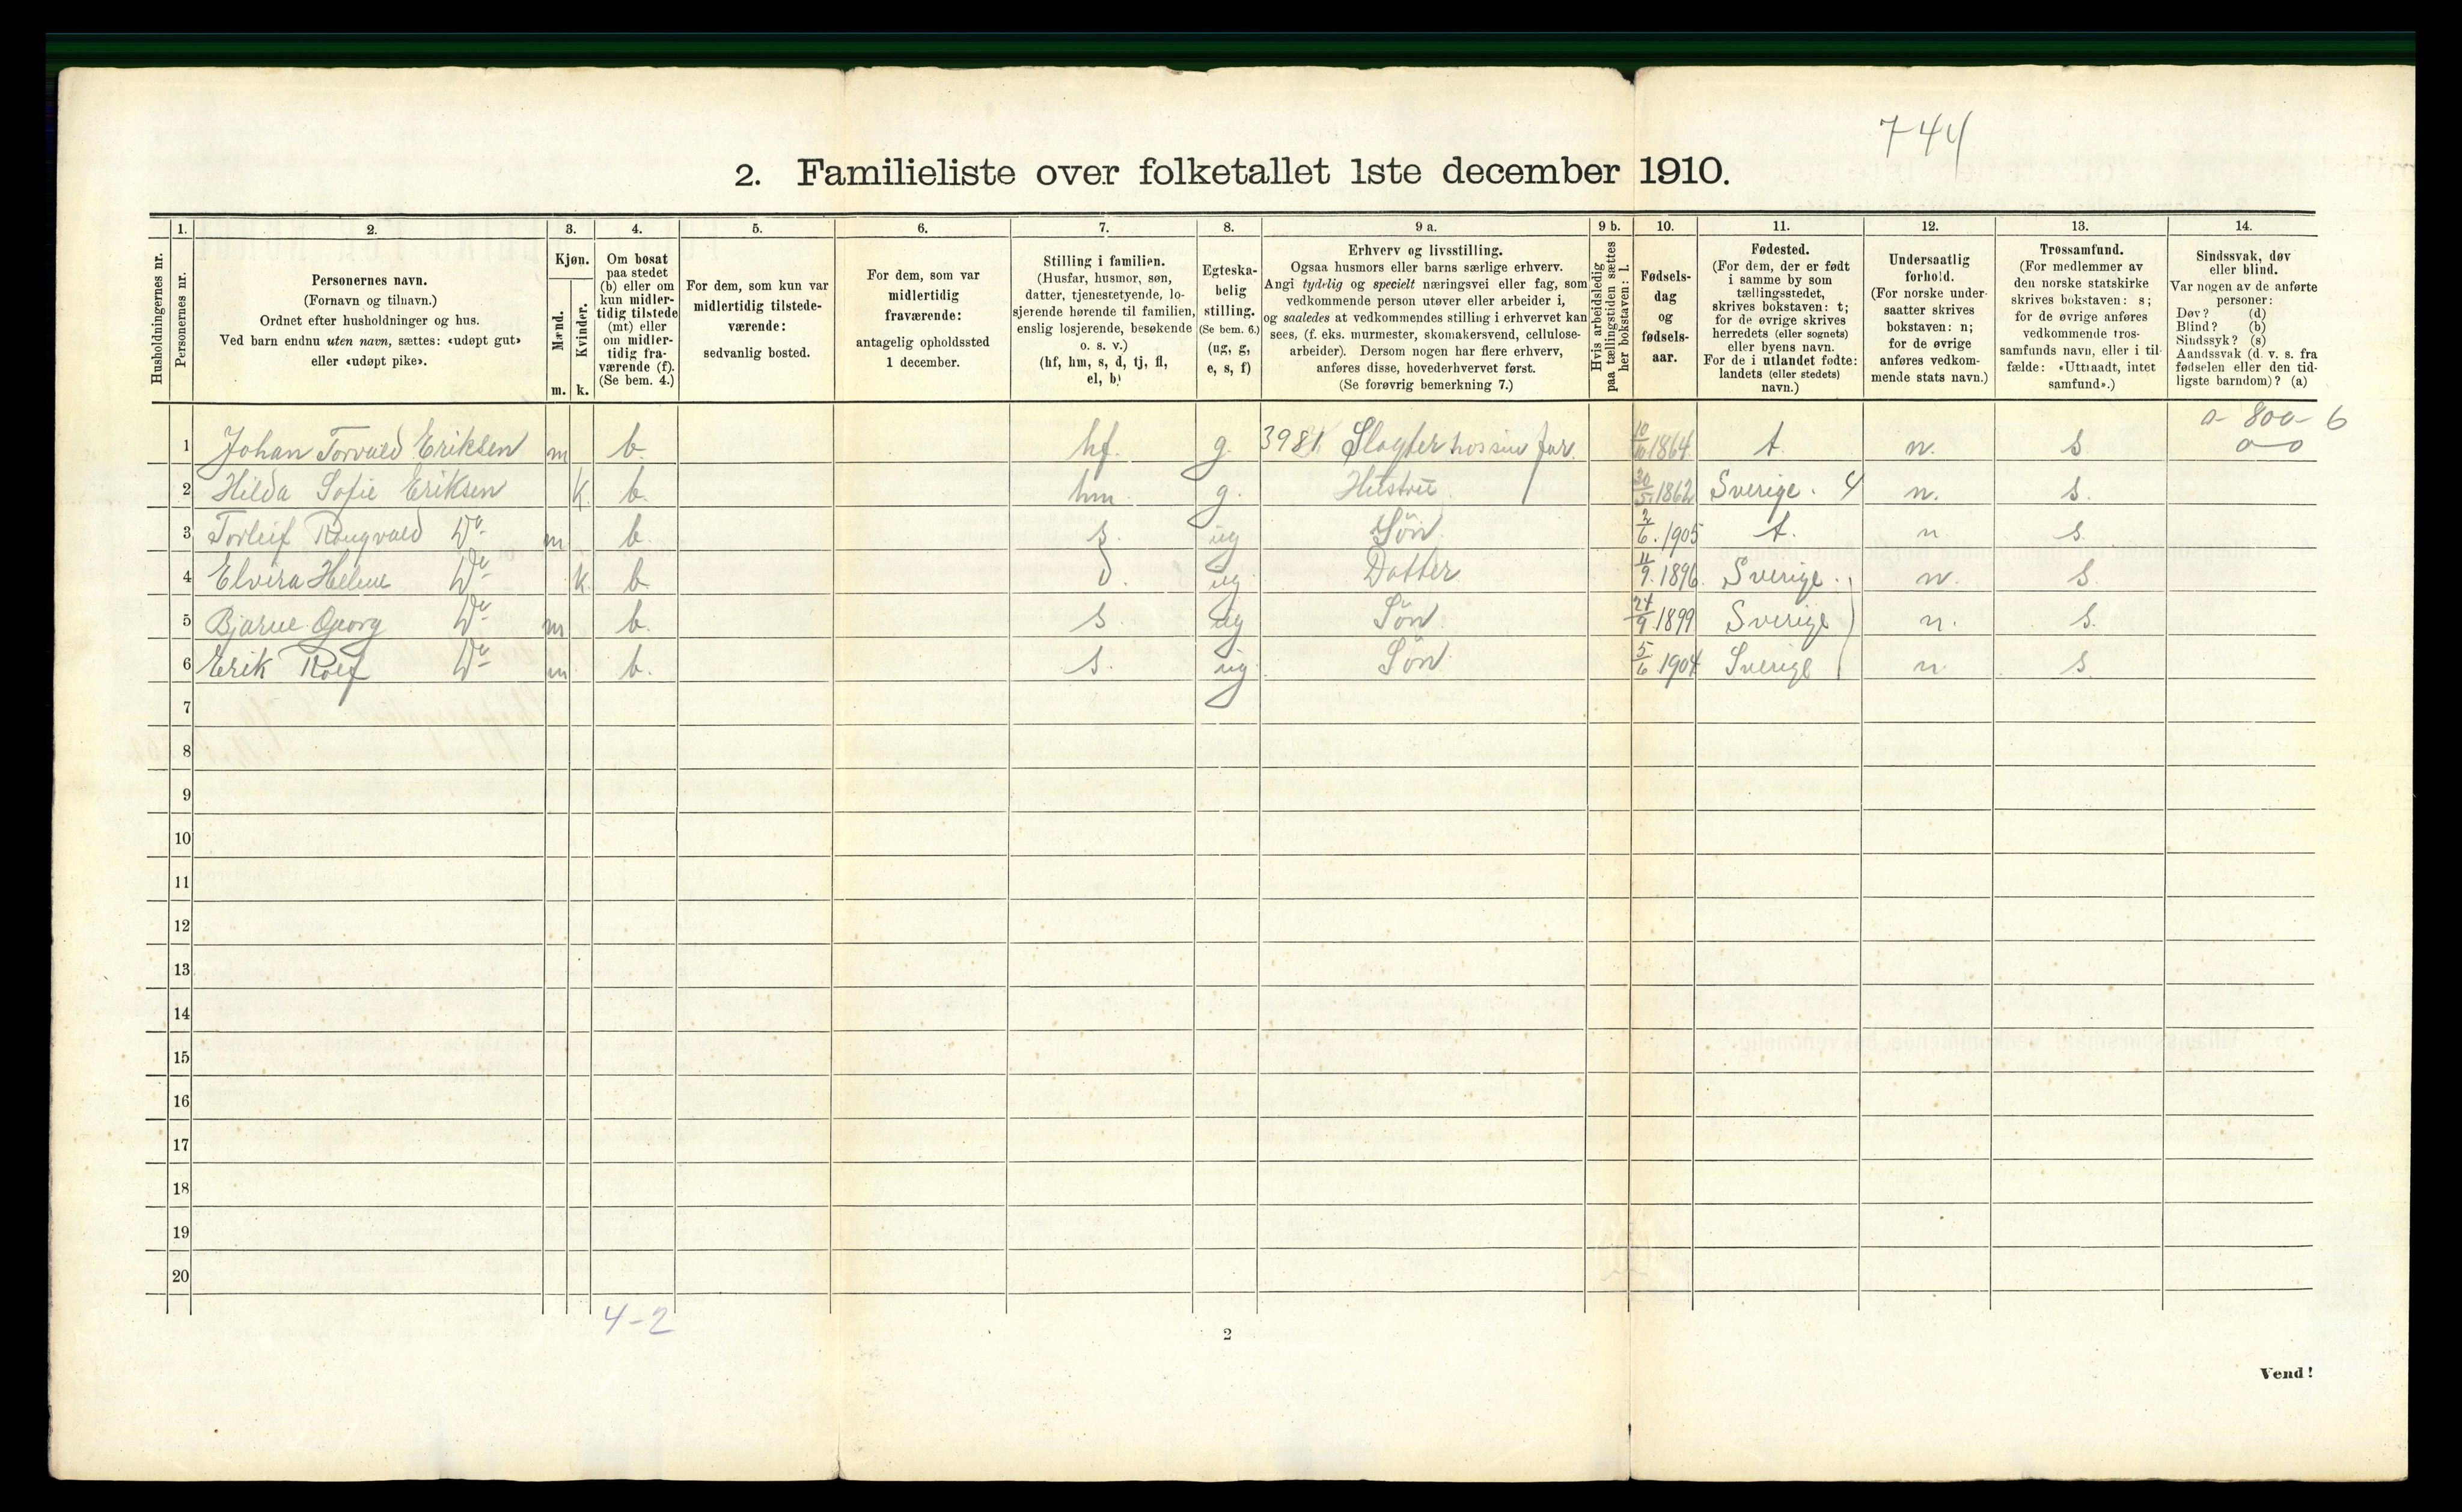 744
2. Familieliste over folketallet 1ste december 1910.
Husholdningernes nr.
1. Personernes nr.
2. Personernes navn. (Fornavn og tilnavn.) Ordnet efter husholdninger og hus. Ved barn endnu uten navn, sættes: «udøpt gut» eller «udøpt pike».
3. Kjøn. Mænd. m. Kvinder. k.
4. Om bosat paa stedet (b) eller om kun midlertidig tilstede (mt) eller om midlertidig fraværende (f). (Se bem. 4.)
5. For dem, som kun var midlertidig tilstedeværende: sedvanlig bosted.
6. For dem, som var midlertidig fraværende: antagelig opholdssted 1 december.
7. Stilling i familien. (Husfar, husmor, søn, datter, tjenestetyende, losjerende hørende til familien, enslig losjerende, besøkende o. s. v.) (hf, hm, s, d, tj, fl, el, b)
8. Egteskabelig stilling. (Se bem. 6.) (ug, g, e, s, f)
9 a. Erhverv og livsstilling. Ogsaa husmors eller barns særlige erhverv. Angi tydelig og specielt næringsvei eller fag, som vedkommende person utøver eller arbeider i, og saaledes at vedkommendes stilling i erhvervet kan sees, (f. eks. murmester, skomakersvend, cellulosearbeider). Dersom nogen har flere erhverv, anføres disse, hovederhvervet først. (Se forøvrig bemerkning 7.)
9 b. Hvis arbeidsledig paa tællingstiden sættes her bokstaven: l.
10. Fødselsdag og fødselsaar.
11. Fødested. (For dem, der er født i samme by som tællingsstedet, skrives bokstaven: t; for de øvrige skrives herredets (eller sognets) eller byens navn. For de i utlandet fødte: landets (eller stedets) navn.)
12. Undersaatlig forhold. (For norske undersaatter skrives bokstaven: n; for de øvrige anføres vedkommende stats navn.)
13. Trossamfund. (For medlemmer av den norske statskirke skrives bokstaven: s; for de øvrige anføres vedkommende trossamfunds navn, eller i tilfælde: «Uttraadt, intet samfund».)
14. Sindssvak, døv eller blind. Var nogen av de anførte personer: Døv? (d) Blind? (b) Sindssyk? (s) Aandssvak (d. v. s. fra fødselen eller den tidligste barndom)? (a)
0-800-6
1 Johan Torvald Eriksen m b. hf. g. 3981 Slagter hos sin far. 1864 t. n. s. 0-0
2 Hilda Sofie Eriksen k. b. hm. g. Hustru 30/5 1862 Sverige. 4 n. s.
3 Torleif Rangvald Do m b. s. ug Søn 2/6. 1905 t. n s.
4 Elvira Helene Do k. b d. ug Datter 11/9. 1896. Sverige. n. s.
5 Bjarne Georg Do m b. s. ug Søn 24/9. 1899 Sverige n. s.
6 Erik Rolf Do m b. s. ug Søn 5/6 1904 Sverige n. s.
7
8
9
10
11
12
13
14
15
16
17
18
19
20
4-2
2
Vend!